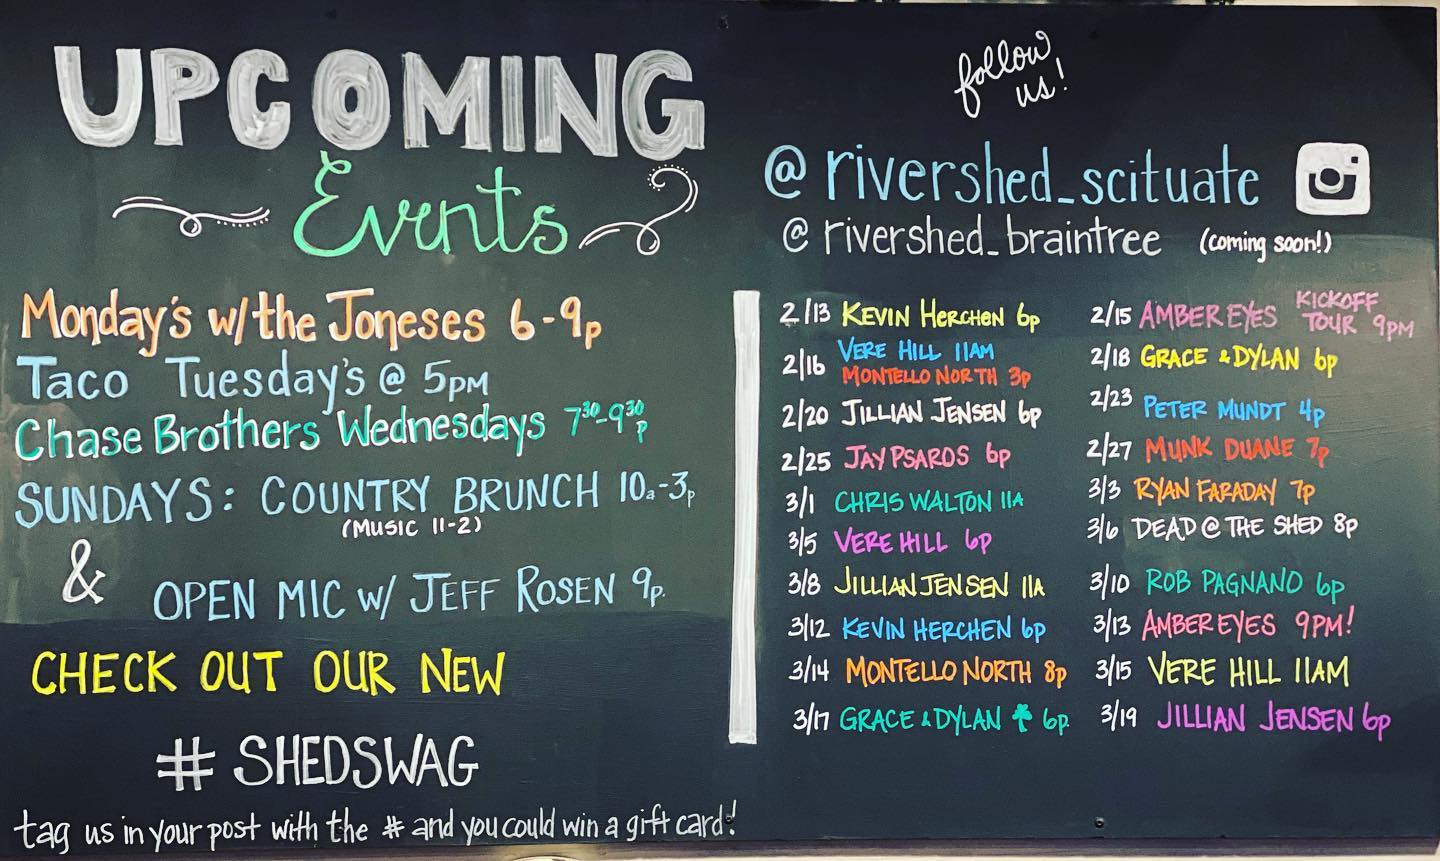 UPCOMING
Events
Monday's w/the Joneses 6-9p
Taco Tuesday's @ 5PM
Chase Brothers Wednesdays 7³⁰-9³⁰p
SUNDAYS: COUNTRY BRUNCH 10a-3p
(MUSIC 11-2)
& OPEN MIC w/ JEFF ROSEN 9p.
CHECK OUT OUR NEW
# SHEDSWAG
tag us in your post with the # and you could win a gift card!
follow
us!
@rivershed_scituate
@rivershed_braintree (coming soon!)
2/13 KEVIN HERCHEN 6p
2/16 VERE HILL 11AM
MONTELLO NORTH 3p
2/20 JILLIAN JENSEN 6p
2/25 JAY PSAROS 6p
3/1 CHRIS WALTON 11A
3/5 VERE HILL 6p
3/8 JILLIAN JENSEN 11A
3/12 KEVIN HERCHEN 6p
3/14 MONTELLO NORTH 8p
3/17 GRACE & DYLAN ☘ 6p
2/15 AMBER EYES KICKOFF
TOUR 9PM
2/18 GRACE & DYLAN 6p
2/23 PETER MUNDT 4p
2/27 MUNK DUANE 7p
3/3 RYAN FARADAY 7p
3/6 DEAD @ THE SHED 8p
3/10 ROB PAGNANO 6p
3/13 AMBER EYES 9PM!
3/15 VERE HILL 11AM
3/19 JILLIAN JENSEN 6p